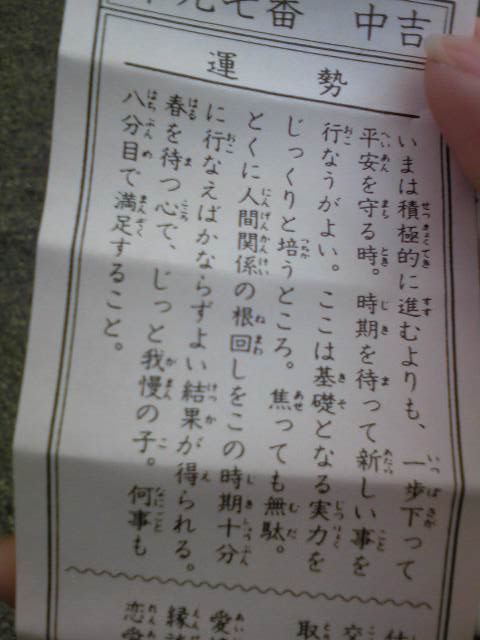 九七番 中吉
運勢
いまは積極的に進むよりも、一歩下って
平安を守る時。時期を待って新しい事を
行なうがよい。ここは基礎となる実力を
じっくりと培うところ。焦っても無駄。
とくに人間関係の根回しをこの時期十分
に行なえばかならずよい結果が得られる。
春を待つ心で、じっと我慢の子。何事も
八分目で満足すること。
交
取
愛
縁談
恋愛